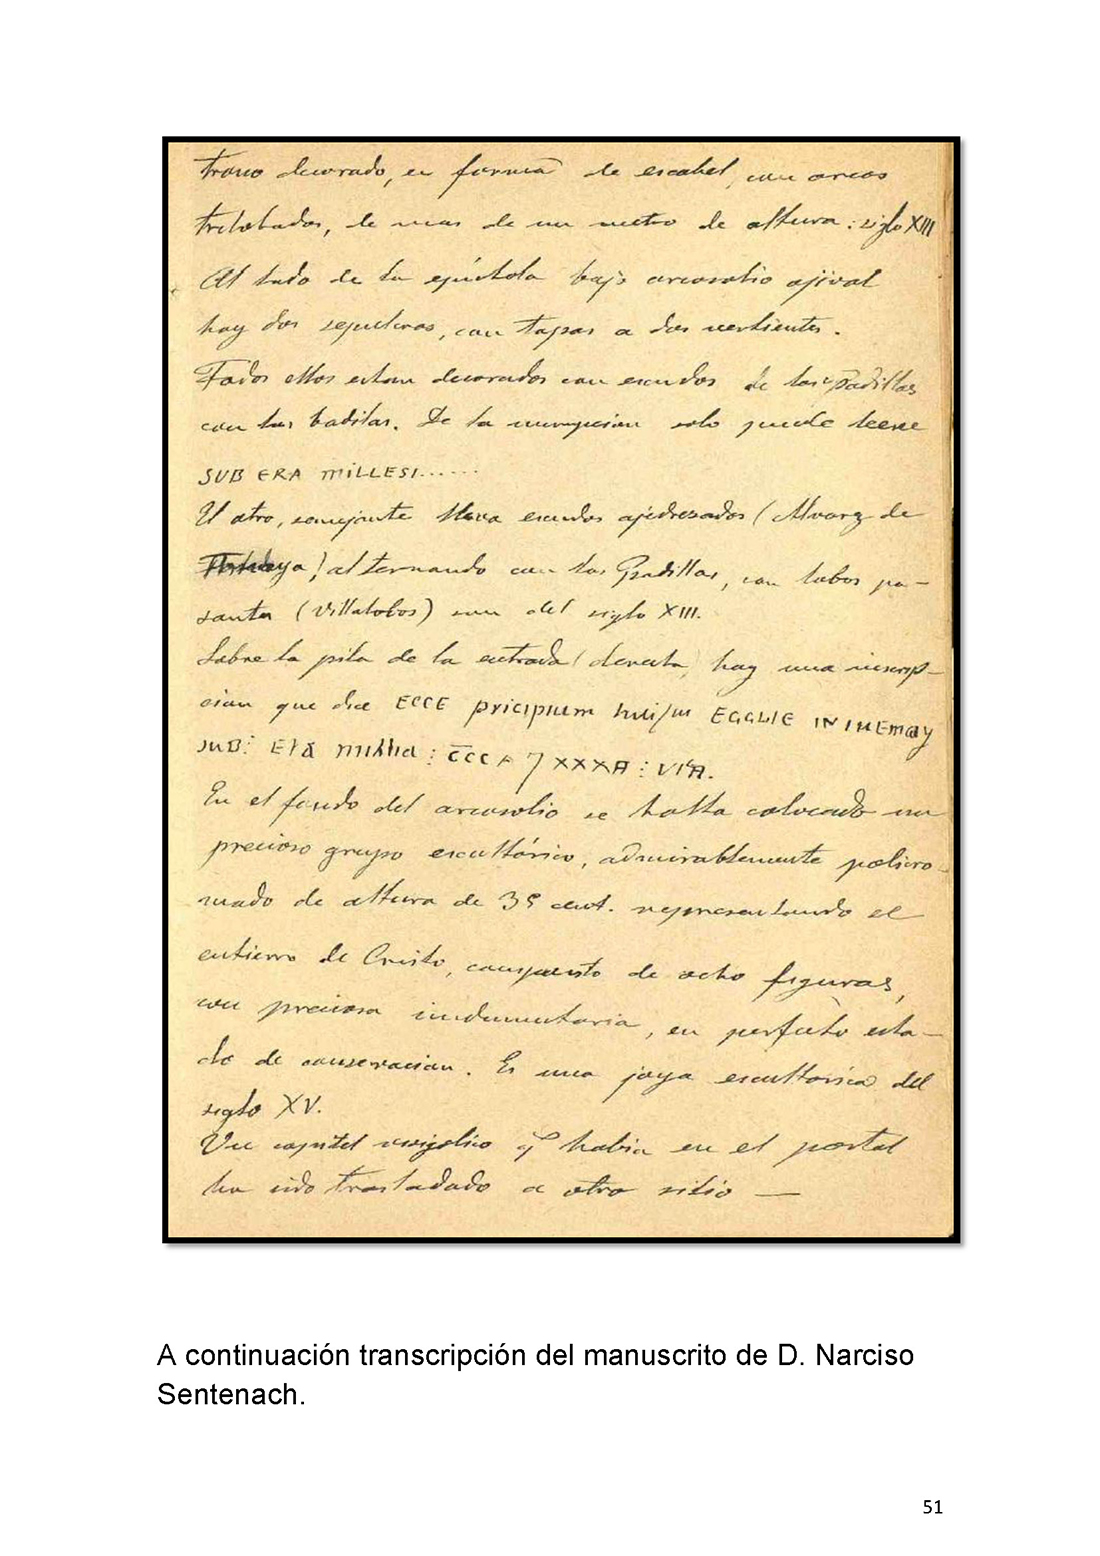 trono decorado, en forma de escabel, con arcos
trilobados, de mas de un metro de altura : siglo XIII
Al lado de la epístola bajo arcosolio ojival
hay dos sepulcros, con tapas a dos vertientes.
Todos ellos estan decorados con escudos de los Padillas
con las badilas. De la inscripcion solo puede leerse
SUB ERA MILLESI......
El otro, semejante lleva escudos ajedrezados (Alvarez de
) alternando con los Padillas, con lobos pa-
santes (Villalobos) son del siglo XIII.
Sobre la pila de la entrada (derecha) hay una inscrip-
cion que dice ECCE pricipium
SUB: : CCCA 7 XXXA : VIA.
En el fondo del arcosolio se halla colocado un
precioso grupo escultórico, admirablemente policro-
mado de altura de 35 cent. representando el
entierro de Cristo, compuesto de ocho figuras,
con preciosa indumentaria, en perfecto esta-
do de conservacion. Es una joya escultorica del
siglo XV.
Un capitel visigotico q habia en el portal
ha sido trasladado a otro sitio —
A continuación transcripción del manuscrito de D. Narciso
Sentenach.
51